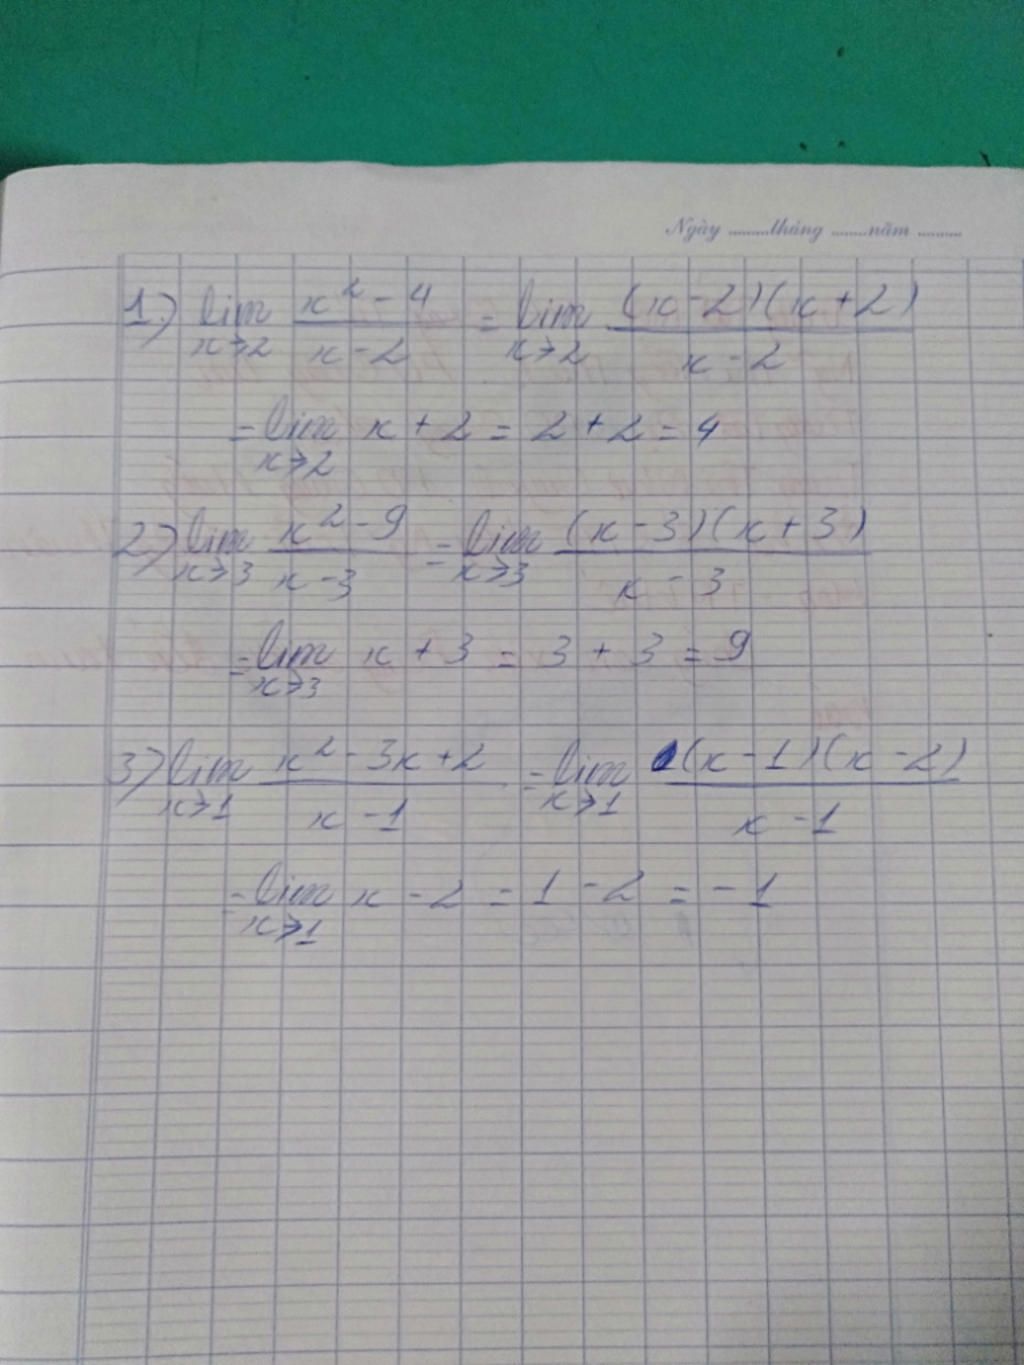 Ngày ........tháng .......năm .........
1.) lim x→2 (x² - 4)/(x - 2) = lim x→2 ((x - 2)(x + 2))/(x - 2)
= lim x→2 x + 2 = 2 + 2 = 4
2) lim x→3 (x² - 9)/(x - 3) = lim x→3 ((x - 3)(x + 3))/(x - 3)
= lim x→3 x + 3 = 3 + 3 = 9
3) lim x→1 (x² - 3x + 2)/(x - 1) = lim x→1 ((x - 1)(x - 2))/(x - 1)
= lim x→1 x - 2 = 1 - 2 = - 1